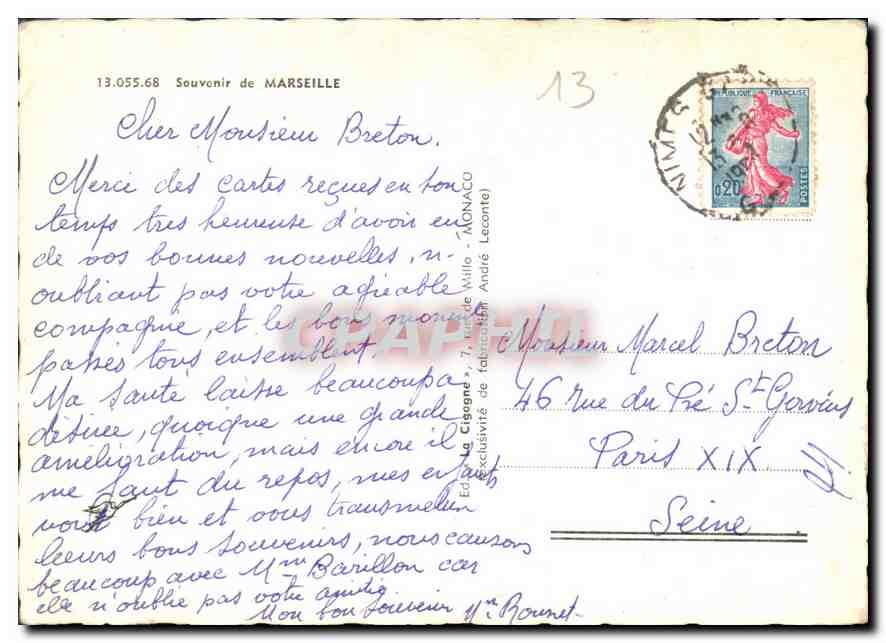 13.055.68 Souvenir de MARSEILLE
13
Cher Monsieur Breton.
Merci des cartes reçues en bon
temps tres heureuse d'avoir eu
de vos bonnes nouvelles, n-
oubliant pas votre agréable
compagnie, et les bons moments
passés tous ensemblent.
Ma santé laisse beaucoup a
désirée, quoique une grande
amélioration, mais encore il
me faut du repos, mes enfants
vont bien et vous transmeten
leurs bons souvenirs, nous causons
beaucoup avec Mme Barillon car
elle n'oublie pas votre amitié.
Mon bon souvenir Me Rounet
Ed. « La Cigogne », 7, rue de Millo - MONACO
(exclusivité de fabrication André Leconte)
CPAPHIL
NIMES
13
REPUBLIQUE FRANÇAISE
0,20
POSTES
Monsieur Marcel Breton
46 rue du Pré St Gervais
Paris XIX
Seine